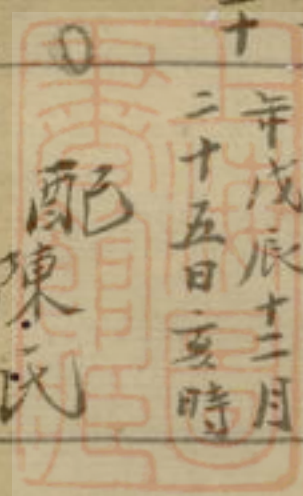 十
年戊辰十二月
二十五日亥時
配陳氏